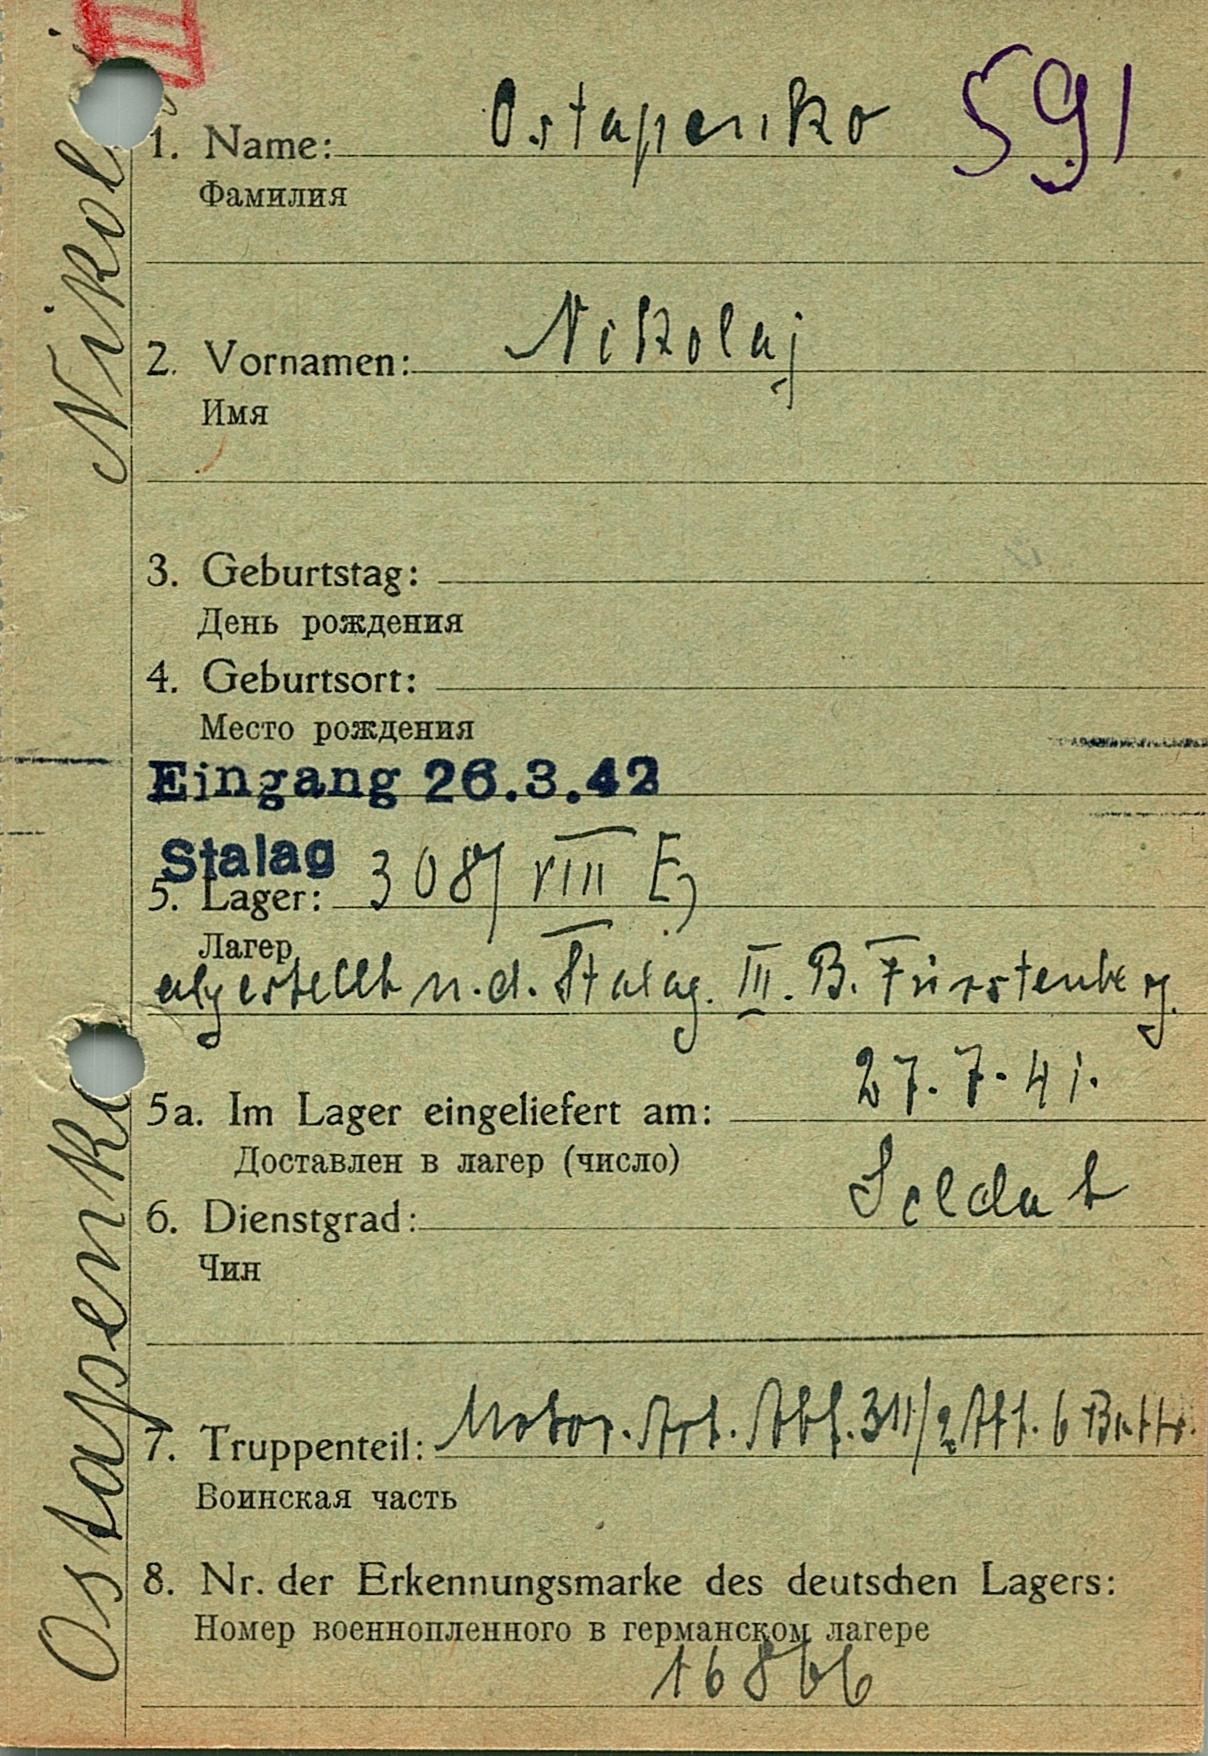 591
1. Name: Ostapenko
Фамилия
2. Vornamen: Nikolaj
Имя
3. Geburtstag:
День рождения
4. Geburtsort:
Место рождения
Eingang 26.3.42
Stalag
5. Lager: 308/ VIII E,
Лагер
abgestellt n. d. Stalag. III. B. Fürstenberg.
5a. Im Lager eingeliefert am: 27.7.41.
Доставлен в лагер (число)
6. Dienstgrad: Soldat
Чин
7. Truppenteil: Motor. Art. Abt. 311/2 Abt. 6 Battr.
Воинская часть
8. Nr. der Erkennungsmarke des deutschen Lagers:
Номер военнопленного в германском лагере
16866
Ostapenko Nikolaj